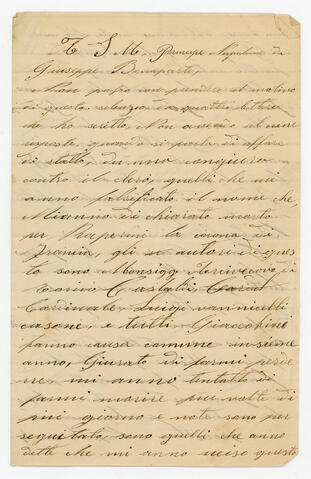 T S M, Principe Napoleone da
Giuseppe Bonaparte,
Non posso comprendere il motivo
di questo silenzio a quattro lettere
che ho scritto, Non essendo al une
risposte, quando si parla di affare
di stato, in una congiura
contro il clero, quelli che mi
anno falsificato il nome che,
Mianno di chiarato morto
per Rapermi la corona di
Francia, gli autori di ques
to sono Monsigg Arcivescovo di
Torino Castaldi,
Cardinale Luigi vannicelli
casone, e tutti Giaccobini
fanno causa comune insieme
anno, Giurato di farmi perde
re, mi anno tentatto di
farmi morire piu volte di
piu giorno e note sono per
seguitato, sono quelli che anno
dette che mi anno uciso questo